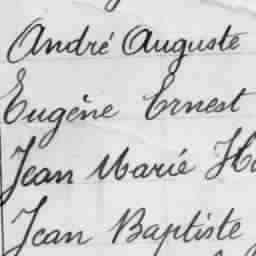 André Auguste
Eugène Ernest
Jean Marie
Jean Baptiste